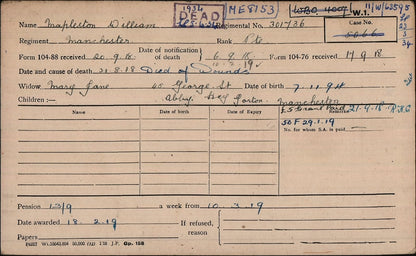 1934
DEAD
ME8153
11/W/63595
W.I.
Name Mapleston William Regimental No. 301736
Case No.
5066
Regiment Manchester Rank Pte
Date of notification
Form 104-88 received 20.9.18. of death 6.9.18 Form 104-76 received 17.9.18
Date and cause of death 31.8.18 Died of Wounds
Widow Mary Jane 65 George St Date of birth 7.11.94
Children:— Abbey Hey Gorton. Manchester
Name Date of birth Date of Expiry 21.9.18
50F 29.1.19
No. for whom S.A. is paid
Pension 13/9 a week from 10.3.19
Date awarded 18.2.19 If refused,
reason
Papers